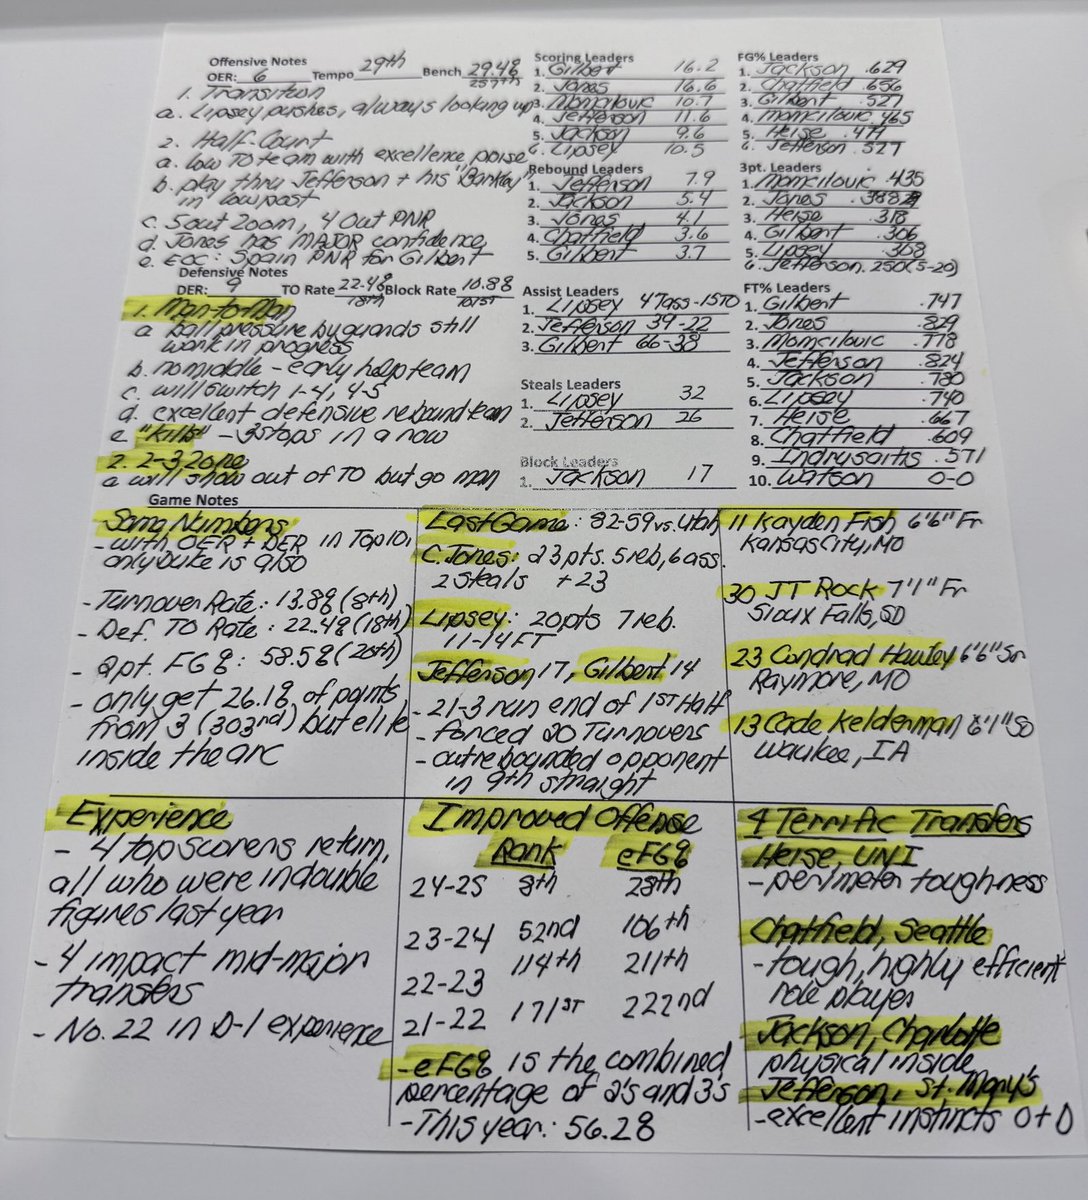 Offensive Notes
OER: 6 Tempo 29th Bench 29.4%
257th
1. Transition
a. Lipsey pushes, always looking up
2. Half-Court
a. low TO team with excellence poise
b. play thru Jefferson + his "Barkley"
in low post
c. 5 out zoom, 4 Out PNR
d. Jones has MAJOR confidence
e. EOC: Spain PNR for Gilbert
Defensive Notes
DER: 9 TO Rate 22.4% Block Rate 10.8%
18th 101st
1. Man-to-Man
a. ball pressure by guards still
work in progress
b. no middle - early help team
c. will switch 1-4, 4-5
d. excellent defensive rebound team
e. "Kills" - 3 stops in a row
2. 2-3 Zone
a. will show out of TO but go man
Scoring Leaders
1. Gilbert 16.2
2. Jones 16.6
3. Momcilovic 10.7
4. Jefferson 11.6
5. Jackson 9.6
6. Lipsey 10.5
Rebound Leaders
1. Jefferson 7.9
2. Jackson 5.4
3. Jones 4.1
4. Chatfield 3.6
5. Gilbert 3.7
Assist Leaders
1. Lipsey 47ass-15TO
2. Jefferson 39-22
3. Gilbert 66-38
Steals Leaders
1. Lipsey 32
2. Jefferson 26
Block Leaders
1. Jackson 17
FG% Leaders
1. Jackson .629
2. Chatfield .656
3. Gilbert .527
4. Momcilovic .465
5. Heise .471
6. Jefferson .527
3pt. Leaders
1. Momcilovic .435
2. Jones .388
3. Heise .318
4. Gilbert .306
5. Lipsey .308
6. Jefferson .250 (5-20)
FT% Leaders
1. Gilbert .747
2. Jones .829
3. Momcilovic .778
4. Jefferson .824
5. Jackson .780
6. Lipsey .740
7. Heise .667
8. Chatfield .609
9. Indrusaitis .571
10. Watson 0-0
Game Notes
Some Numbers
- with OER + DER in Top 10,
only Duke is also
- Turnover Rate: 13.8% (8th)
- Def. TO Rate: 22.4% (18th)
- 2pt. FG%: 58.5% (20th)
- only get 26.1% of points
from 3 (303rd) but elite
inside the arc
Last Game: 82-59 vs. Utah
C. Jones: 23 pts. 5 reb, 6 ass.
2 steals +23
Lipsey: 20pts 7 reb.
11-14 FT
Jefferson 17, Gilbert 14
- 21-3 run end of 1ST Half
- forced 20 Turnovers
- outrebounded opponent
in 9th straight
11 Kayden Fish 6'6" Fr
Kansas City, MO
30 JT Rock 7'1" Fr
Sioux Falls, SD
23 Condrad Hawley 6'6" Sr
Raymore, MO
13 Cade Kelderman 6'1" So
Waukee, IA
Experience
- 4 top scorers return,
all who were in double
figures last year
- 4 impact mid-major
transfers
- No. 22 in D-1 experience
Improved Offense
Rank eFG%
24-25 8th 28th
23-24 52nd 106th
22-23 114th 211th
21-22 171ST 222nd
- eFG% is the combined
percentage of 2's and 3's
- This year: 56.2%
4 Terrific Transfers
Heise, UNI
- perimeter toughness
Chatfield, Seattle
- tough, highly efficient
role player
Jackson, Charlotte
physical inside
Jefferson, St. Mary's
- excellent instincts O + D